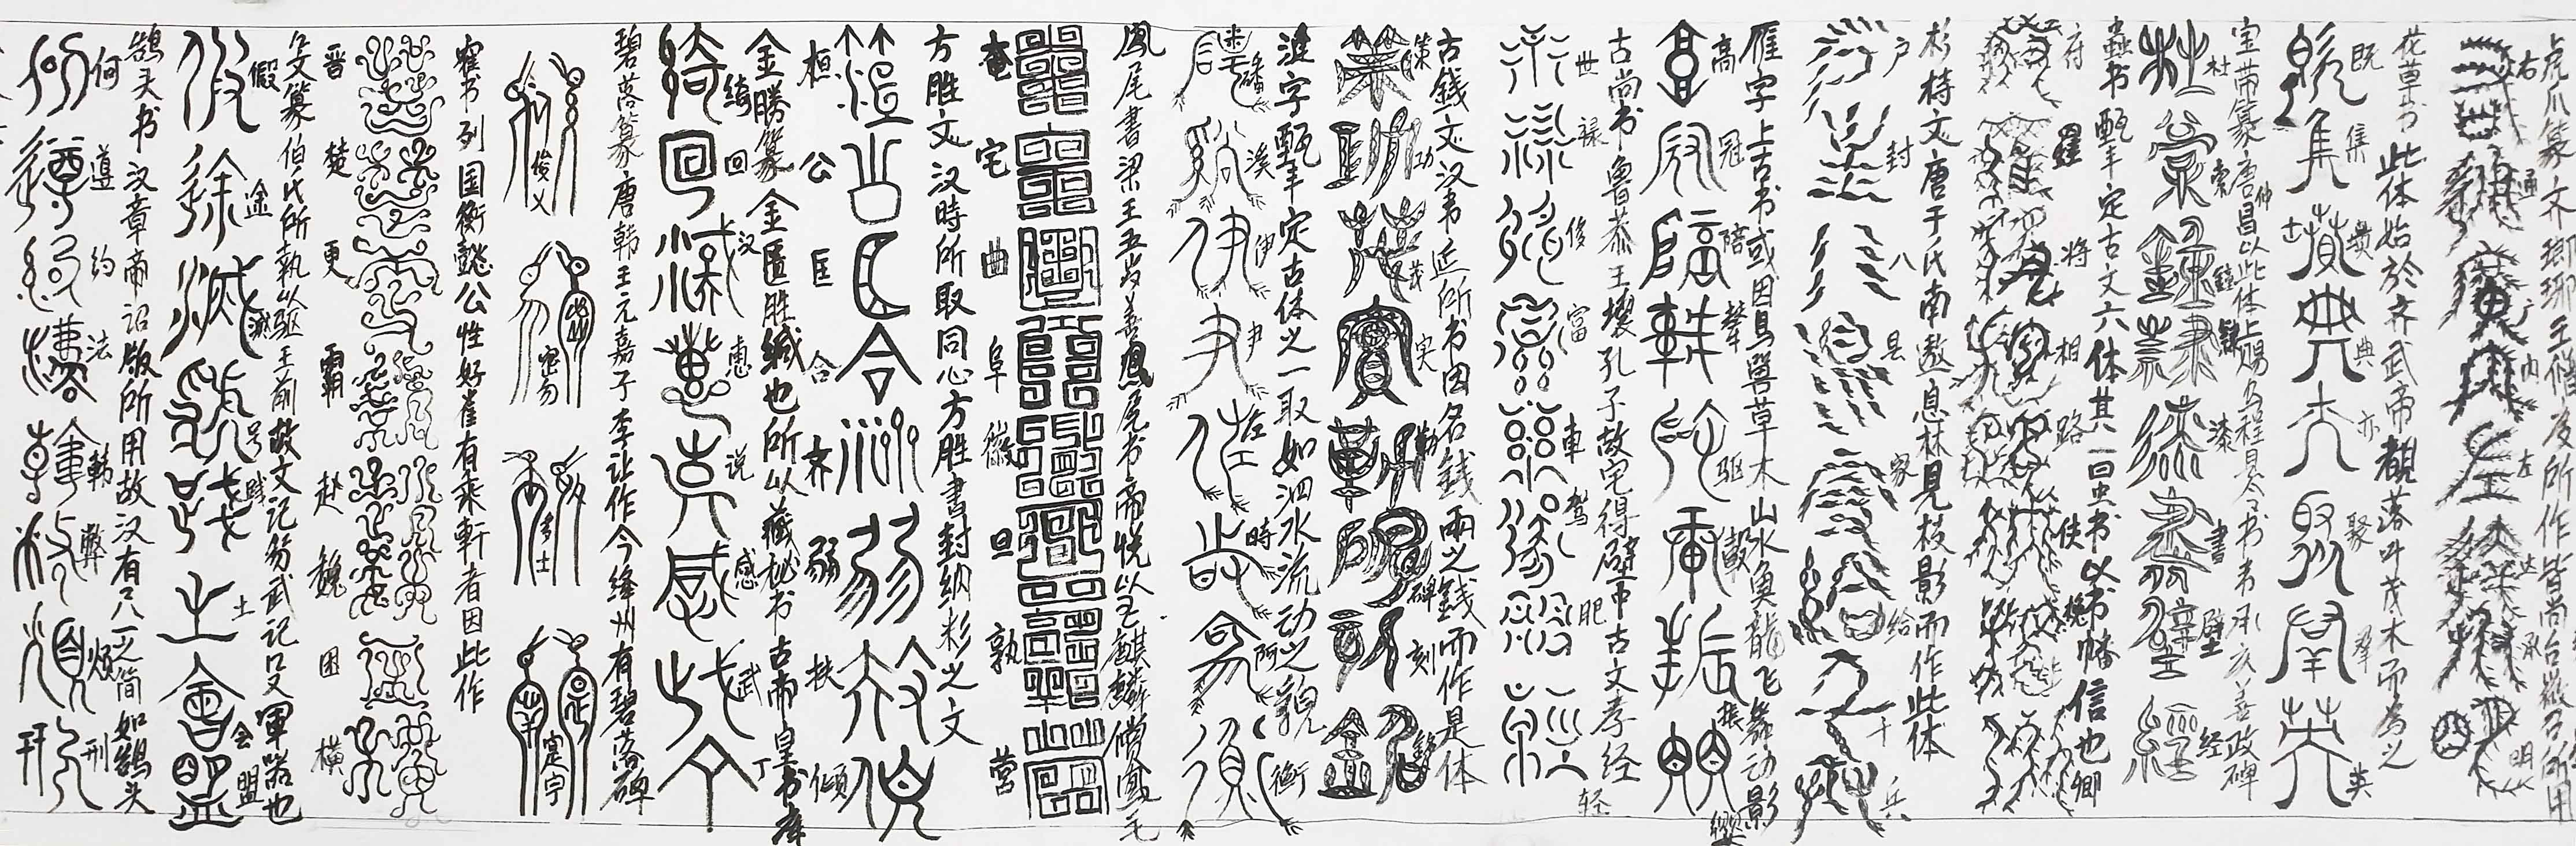 右通广内左达承明
虎爪篆齐瑯琊王僧虔所作皆尚台启召所用
既集坟典亦聚群英
花草书此体始於齐武帝觀落叶茂木而为之
杜稿鍾隸漆書壁经
宝带篆唐昌以此体上赐
府羅将相路侠槐卿
蟲书甄丰定古文六体其一曰虫书以书幡信也
户封八县家给千兵
杉枝文唐于氏南遨息林見枝影而作此体
高冠陪輦驱轂振纓
雁字上古书或因鳥獸草木山水魚龍飞舞动影
世禄侈富車驾肥轻
古尚书鲁恭王壞孔子故宅得壁中古文孝经
策功茂实勒碑刻銘
古錢文汉韦近所书因名錢兩之錢而作是体
磻溪伊尹佐時阿衡
漣字甄丰定古体之一取如泗水流动之貌
奄宅曲阜微旦孰营
鳳尾書梁王五岁善鳳尾书帝悦以玉麒麟償鳳毛
桓公匡合济弱扶倾
方胜文汉時所取同心方胜書封纳彩之文
绮回汉惠说感武丁
金勝篆金匱胜緘也所以藏秘书古帝皇书库
俊乂密勿多士寔宁
碧落篆唐韩王元嘉子李让作今绛州有碧落碑
晋楚更霸赵魏困横
寉书列国衡懿公性好寉有乘軒者因此作
假途滅虢践土会盟
殳篆伯氏所執以驱王前故文记笏武记殳軍器也
何遵约法韩弊烦刑
鹄头书汉章帝诏版所用故汉有尺一之简如鵠头